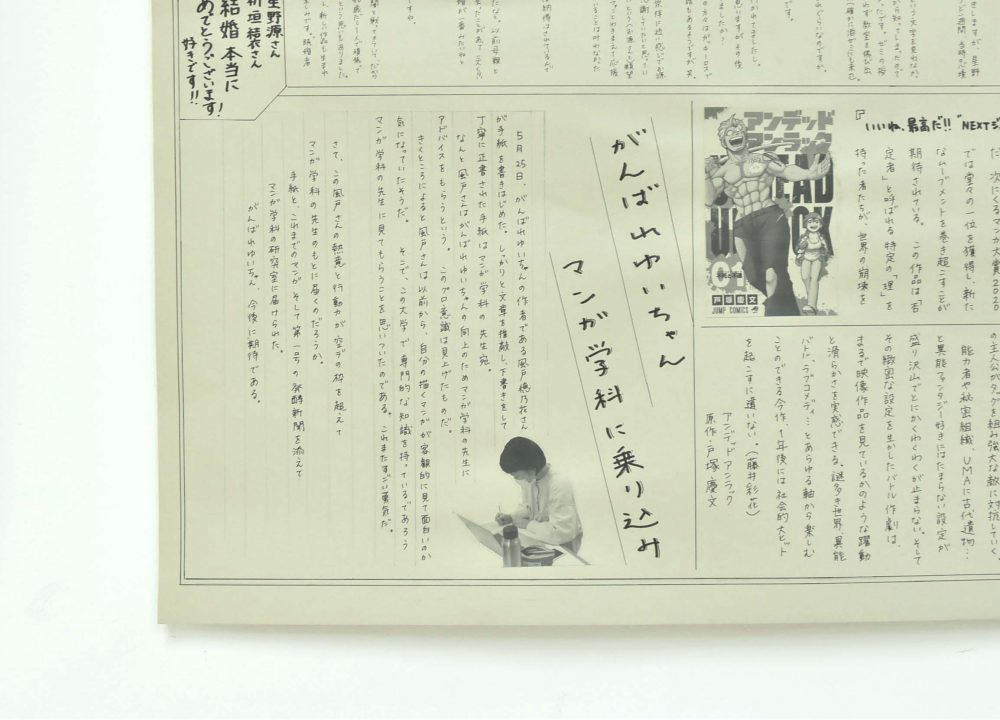 生野源さん
新垣結衣さん
結婚本当に
めでとうございます！
好きです!!
『いいね、最高だ!!"NEXTジ
だ。次にくるマンガ大賞2020
では堂々の一位を獲得し、新た
なムーブメントを巻き起こすことが
期待されている。この作品は「否
定者」と呼ばれる特定の「理」を
持った者たちが、世界の崩壊を
アンデッド
アンラック
UNDEAD
UNLUCK
01
戸塚慶文
JUMP COMICS
の主人公がタッグを組み強大な敵に対抗していく。
能力者や秘密組織、UMAに古代遺物…
と異能ファンタジー好きにはたまらない設定が
盛り沢山でとにかくわくわくが止まらない。そして
その緻密な設定を生かしたバトル作劇は、
まるで映像作品を見ているかのような躍動
と滑らかさを実感できる。謎多き世界、異能
バトル、ラブコメディ…とあらゆる軸から楽しむ
ことのできる今作、1年後には社会的大ヒット
を起こすに違いない。（藤井彩花）
アンデッドアンラック
原作・戸塚慶文
がんばれゆいちゃん
マンガ学科に乗り込み
5月25日、がんばれゆいちゃんの作者である風戸穂乃花さん
が手紙を書きはじめた。しっかりと文章を推敲し、下書きをして
丁寧に正書された手紙はマンガ学科の先生宛。
なんと風戸さんはがんばれゆいちゃんの向上のためマンガ学科の先生に
アドバイスをもらうという。このプロ意識は見上げたものだ。
きくところによると風戸さんは以前から、自分の描くマンガが客観的に見て面白いのか
気になっていたそうだ。そこで、この大学で専門的な知識を持っているであろう
マンガ学科の先生に見てもらうことを思いついたのである。これまたすごい勇気だ。
さて、この風戸さんの熱意と行動力が空デの枠を超えて
マンガ学科の先生のもとに届くのだろうか。
手紙と、これまでのマンガ、そして第一号の発酵新聞を添えて
マンガ学科の研究室に届けられた。
がんばれゆいちゃん、今後に期待である。